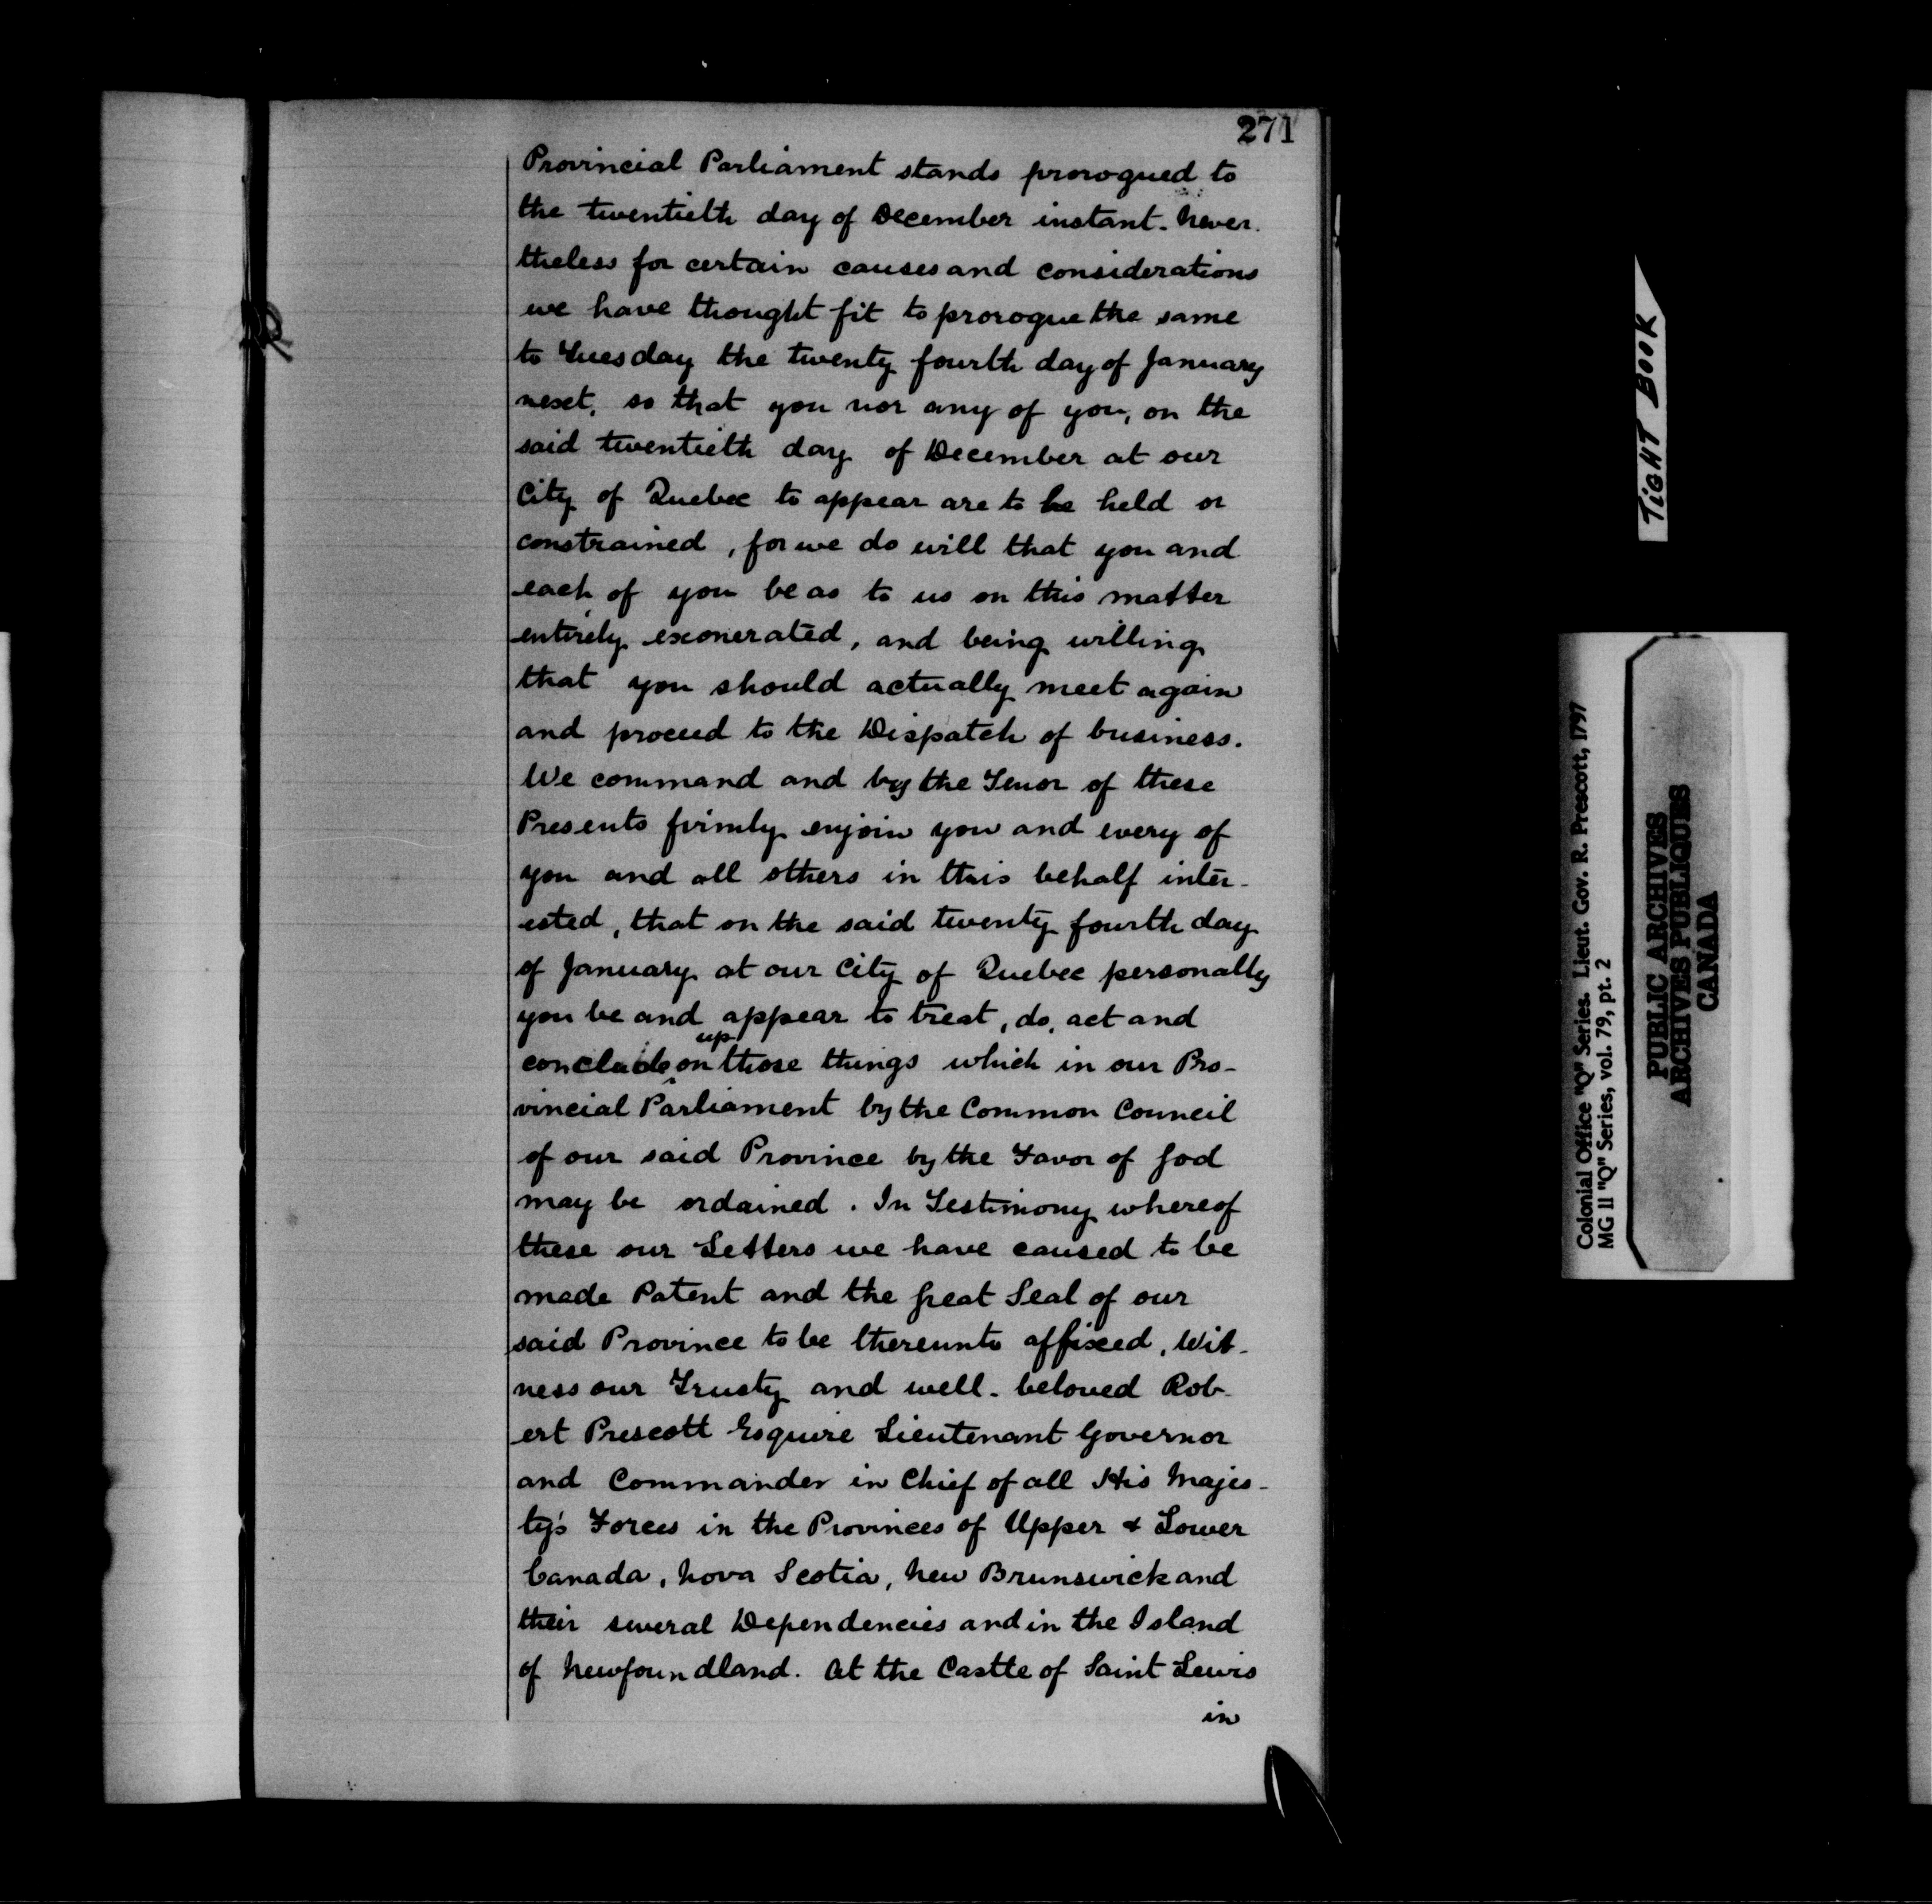 271
Provincial Parliament stands prorogued to
the twentieth day of December instant. Never-
theless for certain causes and considerations
we have thought fit to prorogue the same
to Tuesday the twenty fourth day of January
next, so that you nor any of you, on the
said twentieth day of December at our
City of Quebec to appear are to be held or
constrained, for we do will that you and
each of you be as to us on this matter
entirely exonerated, and being willing
that you should actually meet again
and proceed to the Dispatch of business.
We command and by the Tenor of these
Presents firmly enjoin you and every of
you and all others in this behalf inter-
ested, that on the said twenty fourth day
of January at our City of Quebec personally
you be and appear to treat, do, act and
conclude upon those things which in our Pro-
vincial Parliament by the Common Council
of our said Province by the Favor of God
may be ordained. In Testimony whereof
these our Letters we have caused to be
made Patent and the Great Seal of our
said Province to be thereunto affixed, Wit-
ness our Trusty and well-beloved Rob-
ert Prescott Esquire Lieutenant Governor
and Commander in Chief of all His Majes-
ty's Forces in the Provinces of Upper & Lower
Canada, Nova Scotia, New Brunswick and
their several Dependencies and in the Island
of Newfoundland. At the Castle of Saint Lewis
in
TIGHT BOOK
Colonial Office "Q" Series. Lieut. Gov. R. Prescott, 1797
MG 11 "Q" Series, vol. 79, pt. 2
PUBLIC ARCHIVES
ARCHIVES PUBLIQUES
CANADA